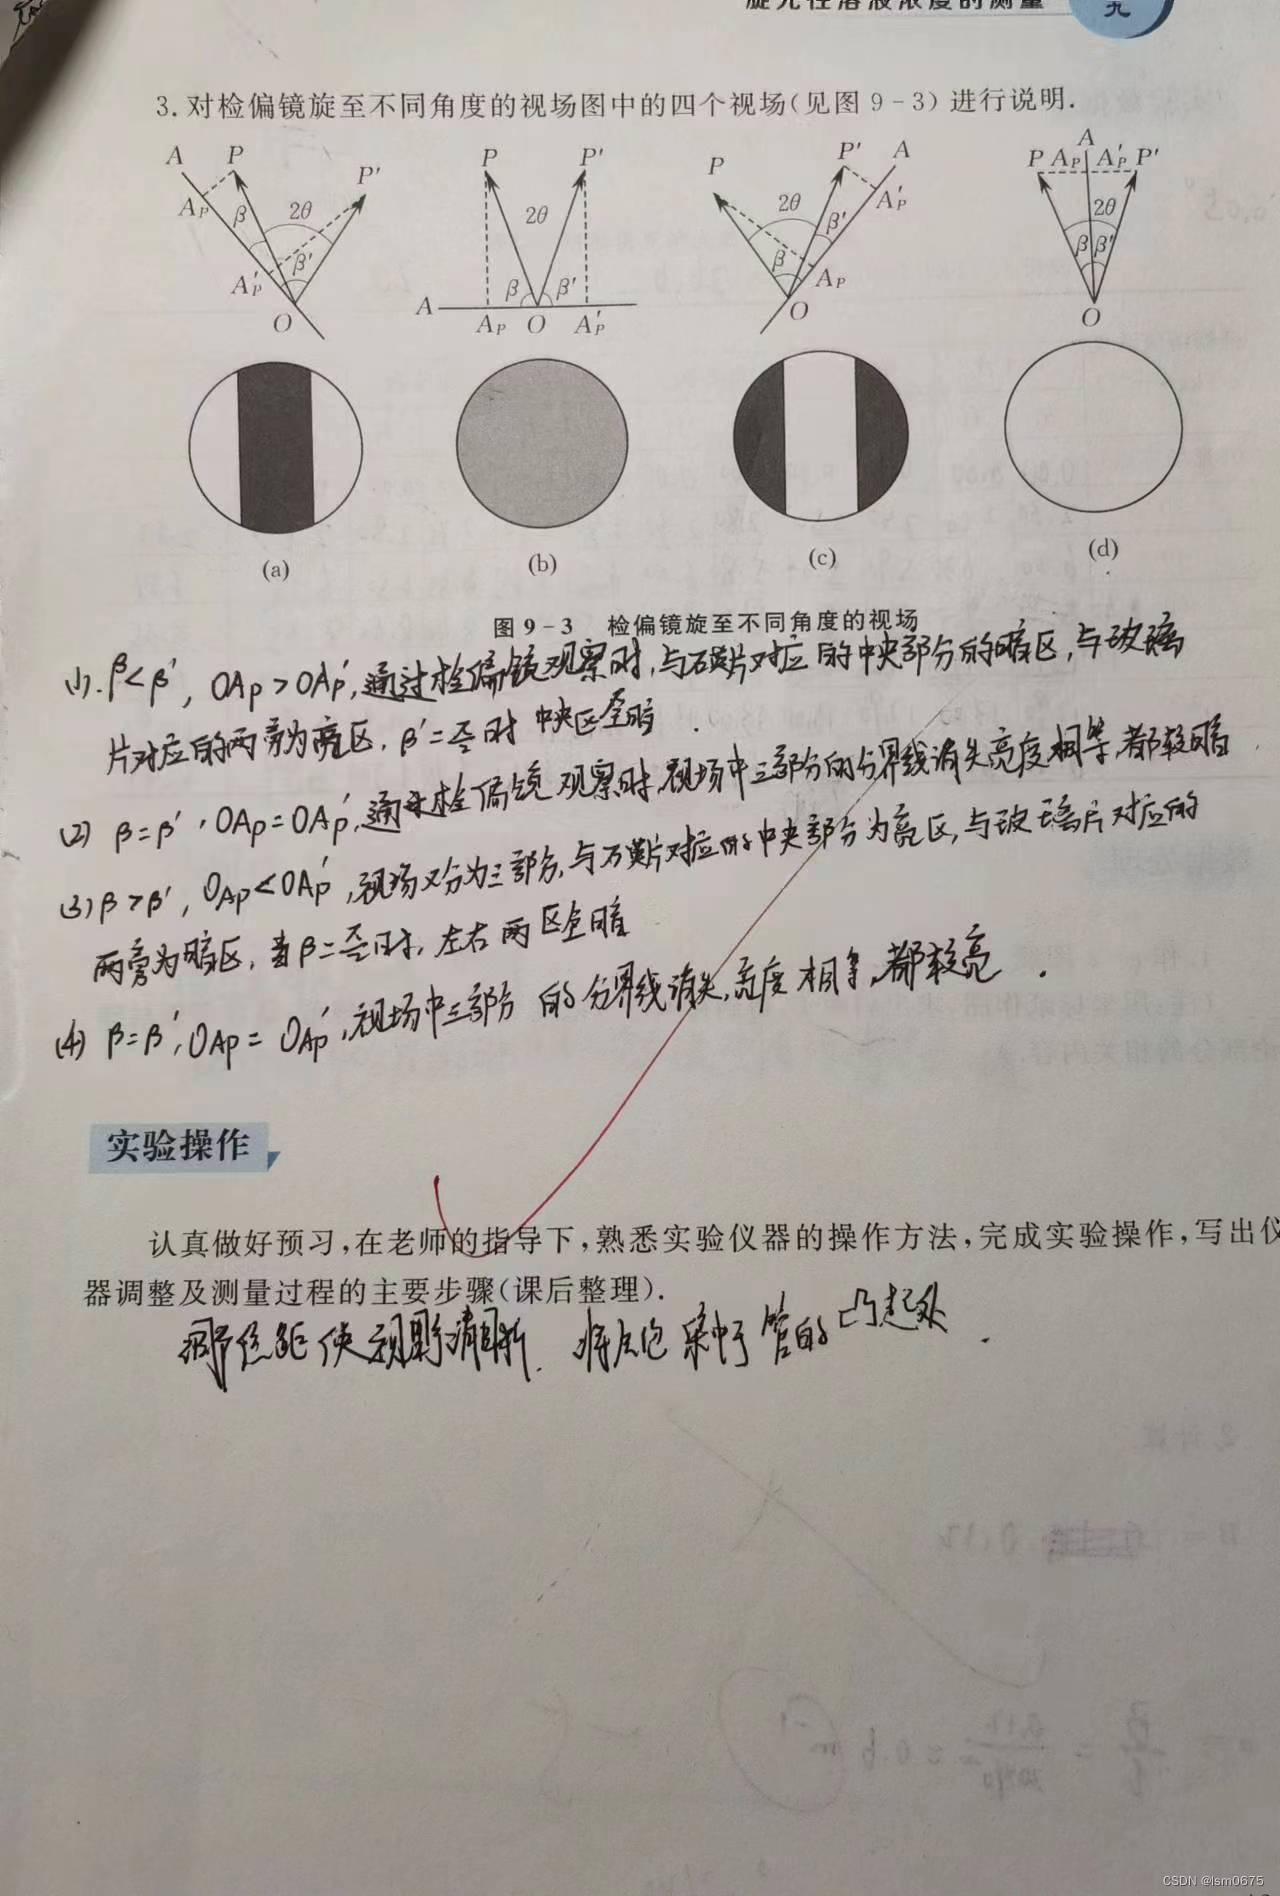 旋光性溶液浓度的测量
九
3.对检偏镜旋至不同角度的视场图中的四个视场(见图 9-3) 进行说明.
A P P' Ap β 2θ A'p β' O
P P' 2θ β β' A Ap O A'p
P P' A 2θ β' A'p β Ap O
A P Ap A'p P' 2θ β β' O
(a) (b) (c) (d)
图 9-3 检偏镜旋至不同角度的视场
(1). β<β', OAp>OAp', 通过检偏镜观察时,与石英片对应的中央部分的暗区,与玻璃
片对应的两旁为亮区, β'= 时 中央区全暗.
(2) β=β', OAp=OAp',通过检偏镜观察时,视场中三部分的分界线消失亮度相等,都较暗
(3) β>β', OAp<OAp',视场又分为三部分,与石英片对应的中央部分为亮区,与玻璃片对应的
两旁为暗区,当β= 时,左右两区全暗
(4) β=β', OAp=OAp',视场中三部分的分界线消失,亮度相等,都较亮.
实验操作
认真做好预习,在老师的指导下,熟悉实验仪器的操作方法,完成实验操作,写出仪
器调整及测量过程的主要步骤(课后整理).
调节 距使视野清晰. 将气泡集中于管的凸起处.
CSDN @lsm0675